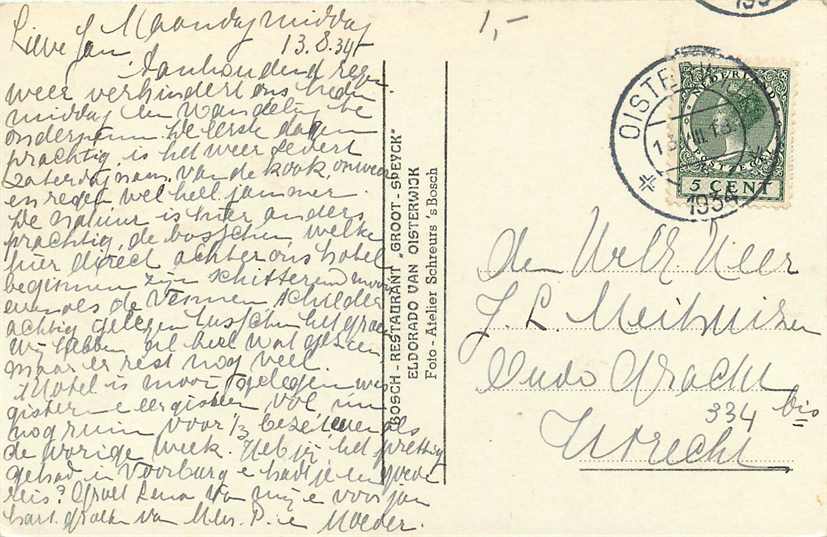 Maandagmiddag
Lieve Jan
13.8.34
Aanhoudend regen
weer verhindert ons heden
middag een wandeling te
ondernemen. De eerste dagen
prachtig is het weer sedert
Zaterdag van de kook, onweer
en regen wel heel jammer.
De natuur is hier anders
prachtig, de bosschen, welke
hier direct achter ons hotel
beginnen zijn schitterend mooi
evenals de Vennen schilder
achtig gelegen tusschen het groen
Wij hebben al heel wat gezien
maar er rest nog veel.
't Hotel is mooi gelegen was
gisteren e eergisteren vol, nu
nog ruim voor 1/3 bezet evenals
de vorige week. Heb jij het prettig
gehad in Voorburg e hadt je een goede
reis? Groet Lena van mij e voor jou
hart. groeten van P. e Moeder.
BOSCH-RESTAURANT „GROOT-SPEYCK"
ELDORADO VAN OISTERWIJK
Foto - Atelier Schreurs 's Bosch
1,-
1934
OISTERWIJK
1934
NEDERLAND
POSTZEGEL
5 CENT
den WelE Heer
J. L. Meihuizen
Oude Gracht
334 bis
Utrecht